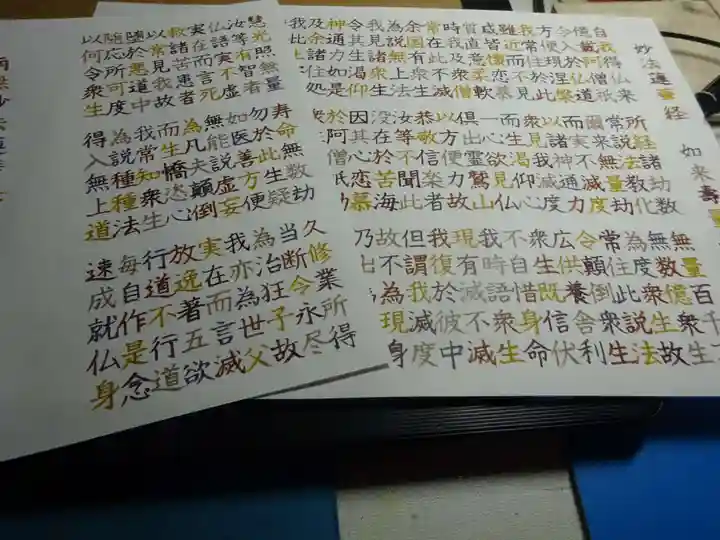 妙法蓮華経 如来壽量
自我得仏来 所経諸劫数 無量百千
億載阿僧祇 常説法教化 無数億衆生
令入於仏道 爾来無量劫 為度衆生故
方便現涅槃 而実不滅度 常住此説法
我常住於此 以諸神通力 令顛倒衆生
雖近而不見 衆見我滅度 広供養舎利
咸皆懐恋慕 而生渇仰心 衆生既信伏
質直意柔軟 一心欲見仏 不自惜身命
時我及衆僧 倶出霊鷲山 我時語衆生
常在此不滅 以方便力故 現有滅不滅
余国有衆生 恭敬信楽者 我復於彼中
為説無上法 汝等不聞此 但謂我滅度
我見諸衆生 没在於苦海 故不為現身
令其生渇仰 因其心恋慕 乃出為
神通力如是 於阿僧祇
及余諸住処
慧光照無量 寿命無数劫 久修業所得
汝等有智者 勿於此生疑 当断令永尽
仏語実不虚 如医善方便 為治狂子故
実在而言死 無能説虚妄 我亦為世父
救諸苦患者 為凡夫顛倒 実在而言滅
以常見我故 而生憍恣心 放逸著五欲
堕於悪道中 我常知衆生 行道不行道
随応所可度 為説種種法 毎自作是念
以何令衆生 得入無上道 速成就仏身